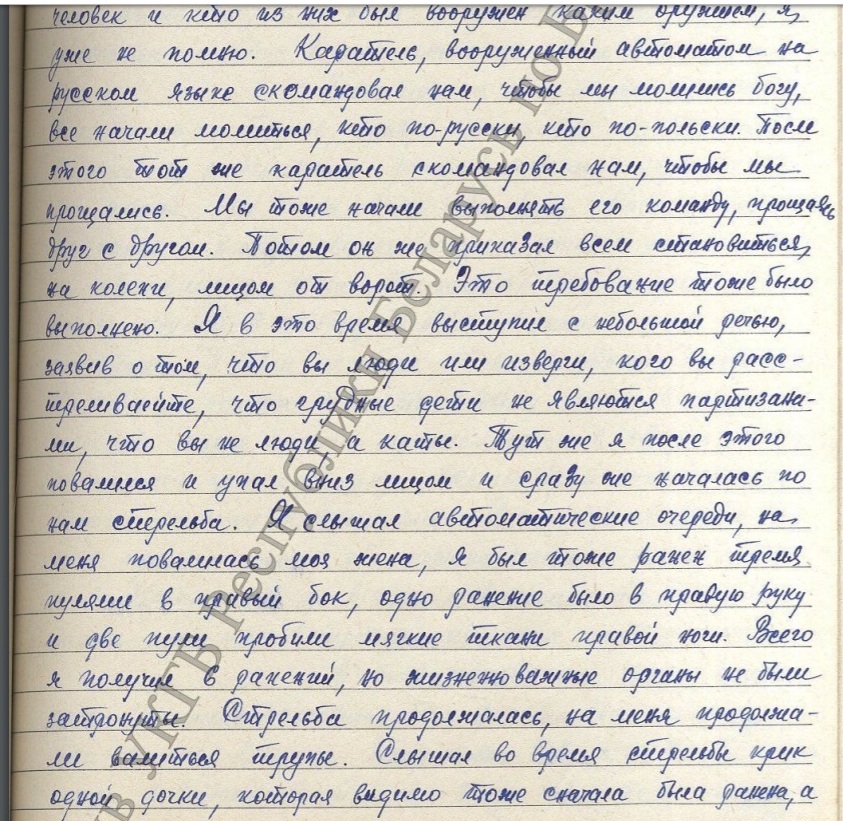 человек и кто из них был вооружен каким оружием, я,
уже не помню. Каратель, вооруженный автоматом на
русском языке скомандовал нам, чтобы мы молились богу,
все начали молиться, кто по-русски, кто по-польски. После
этого тот же каратель скомандовал нам, чтобы мы
прощались. Мы тоже начали выполнять его команду, прощаясь
друг с другом. Потом он же приказал всем становиться,
на колени, лицом от ворот. Это требование тоже было
выполнено. Я в это время выступил с небольшой речью,
заявив о том, что вы люди или изверги, кого вы расс-
треливаейте, что грудные дети не являются партизана-
ми, что вы не люди, а каты. Тут же я после этого
повалился и упал вниз лицом и сразу же началась по
нам стрельба. Я слышал автоматические очереди, на
меня повалилась моя жена, я был тоже ранен тремя
пулями в правый бок, одно ранение было в правую руку
и две пули пробили мягкие ткани правой ноги. Всего
я получил 6 ранений, но жизненноважные органы не были
затронуты. Стрельба продолжалась, на меня продолжа-
ли валиться трупы. Слышал во время стрельбы крик
одной дочки, которая видимо тоже сначала была ранена, а
УКГБ Республики Беларусь по